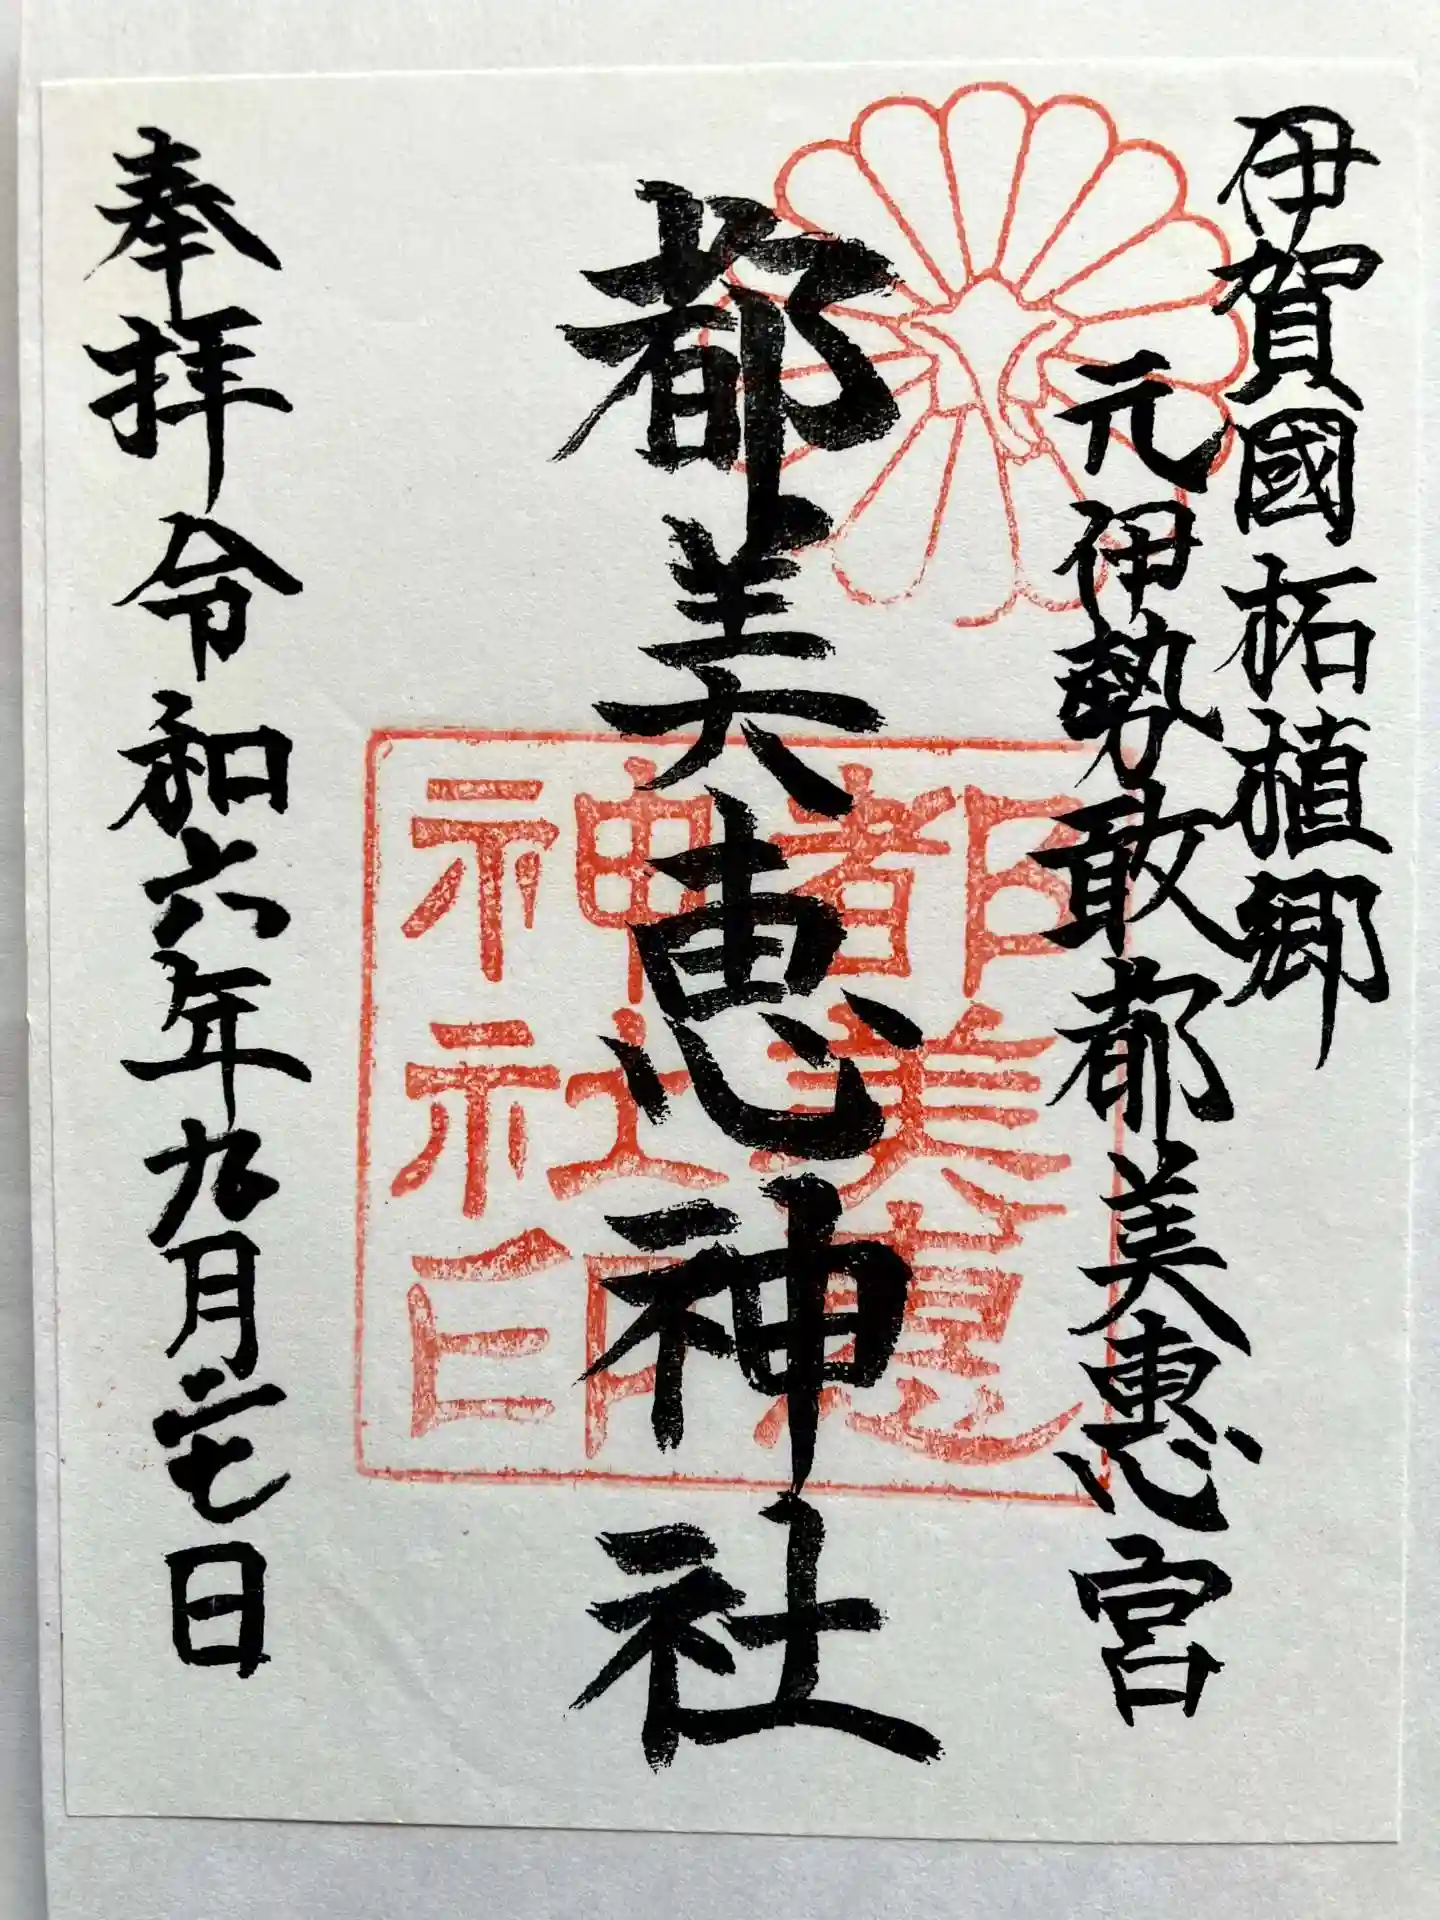 伊賀國柘植郷
元伊勢敢都美恵宮
都美恵神社
都美恵
神社印
奉拝令和六年九月二十七日